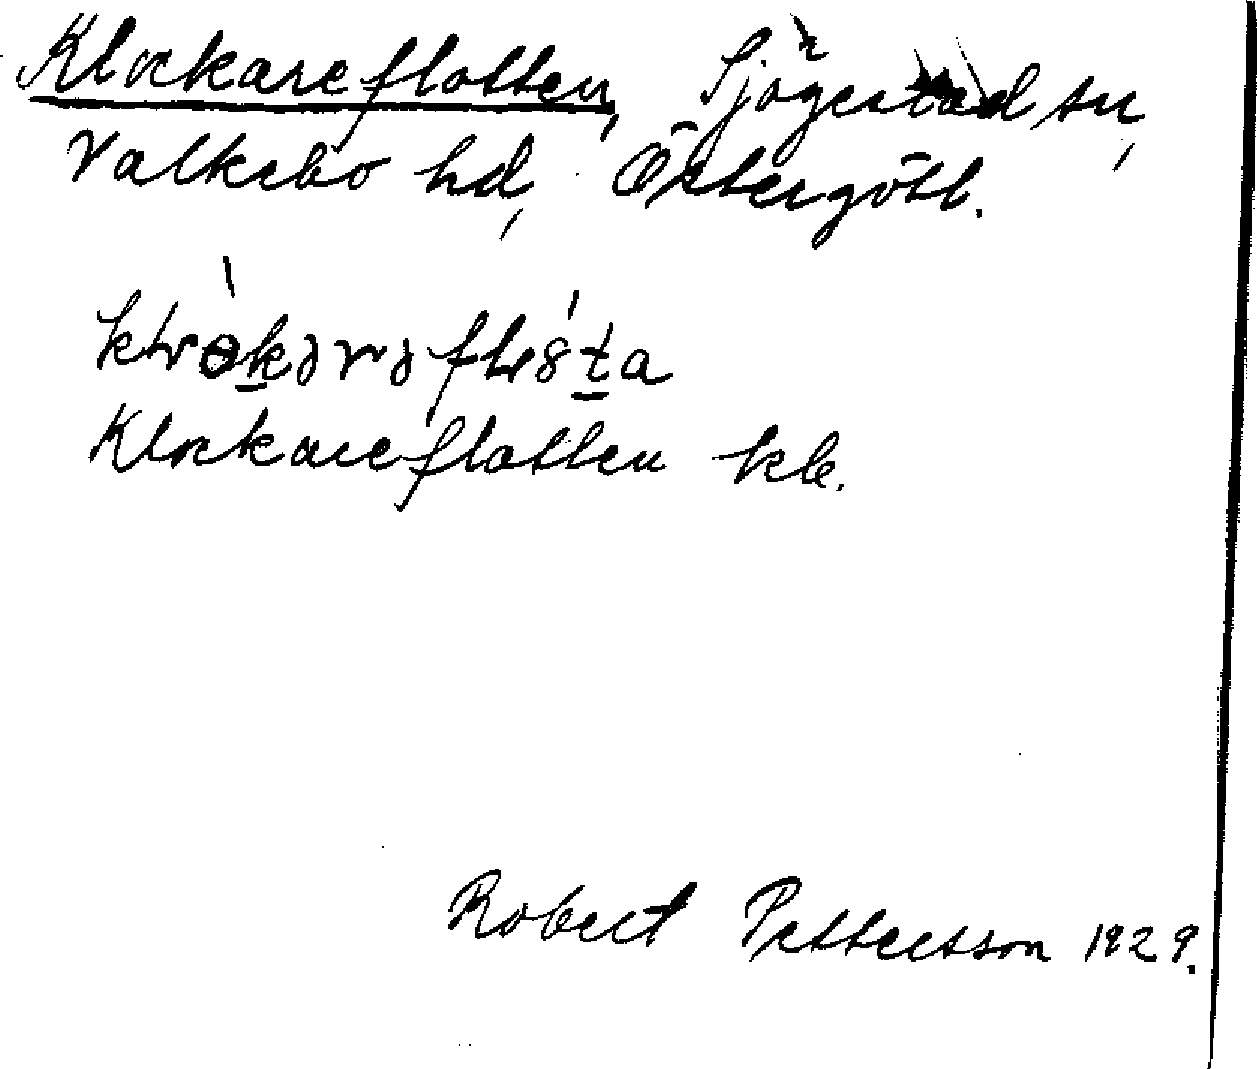 Klockareflotten, Sjögestad sn,
Valkebo hd, Östergötl.
Klockareflotten kb.
Robert Pettersson 1929.